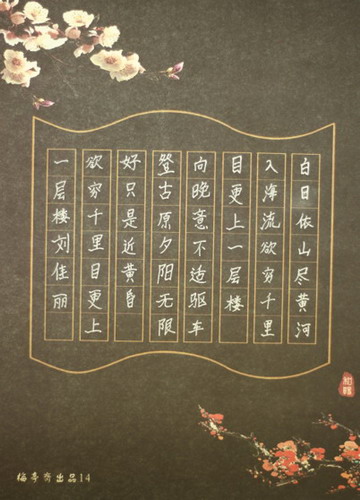 白日依山尽黄河
入海流欲穷千里
目更上一层楼
向晚意不适驱车
登古原夕阳无限
好只是近黄昏
欲穷千里目更上
一层楼刘佳丽
偏亭斋出品14